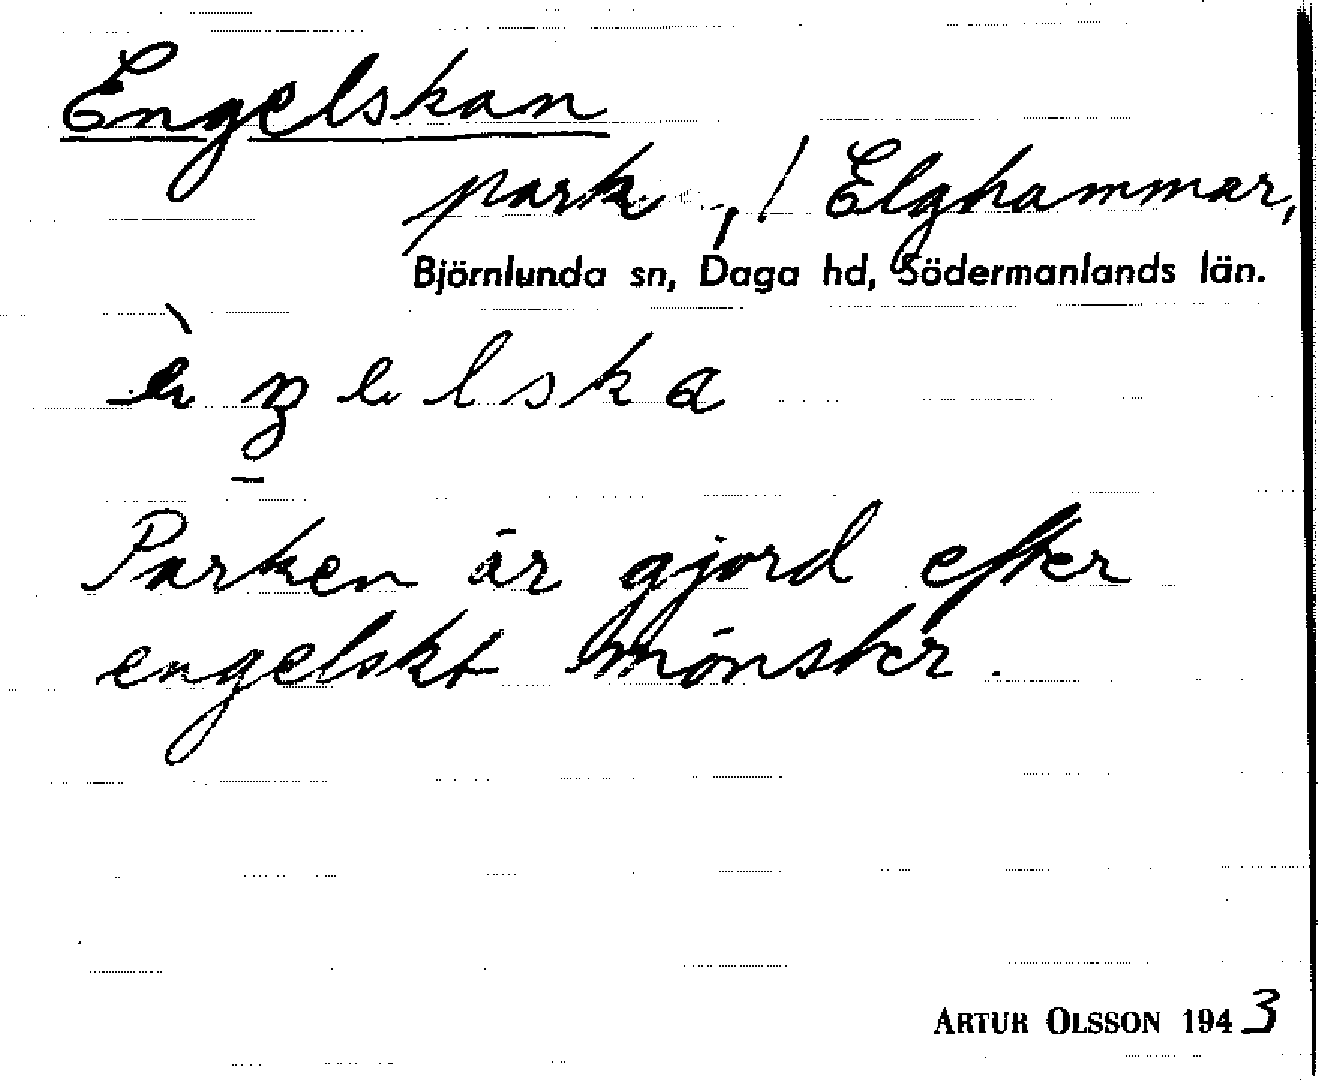 Engelskan
park, / Elghammar,
Björnlunda sn, Daga hd, Södermanlands län.
èŋelska
Parken är gjord efter
engelskt mönster.
ARTUR OLSSON 1943